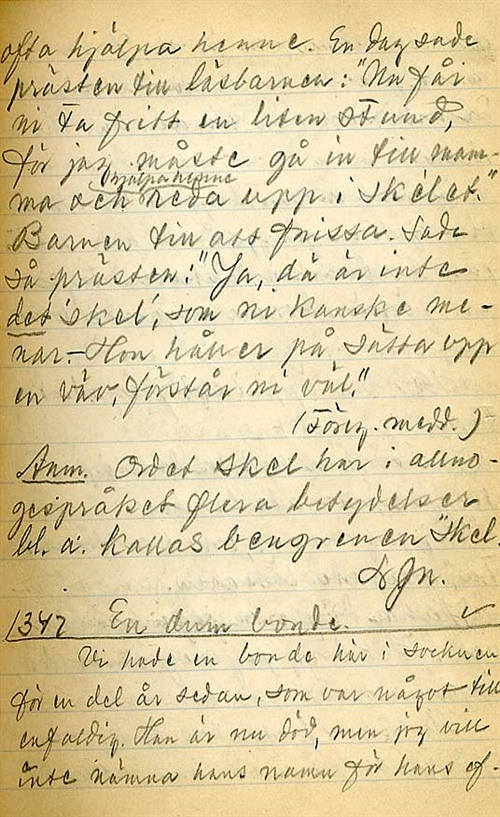 ofta hjälpa henne. En dag sade
prästen till läsbarnen: "Nu får
ni ta fritt en liten stund,
för jag måste gå in till mam-
hjälpa henne
ma och reda upp i skélet."
Barnen till att fnissa. Sade
så prästen: "Ja, då är inte
det 'skel', som ni kanske me-
nar. - Hon håller på sätta upp
en väv, förstår ni väl."
(Föreg. medd.)
Anm. Ordet skel har i allmo-
gespråket flera betydelser
bl. a. kallas bengrenen "skel.
1347 En dum bonde. ✓
Vi hade en bonde här i socknen
för en del år sedan, som var något till
enfaldig. Han är nu död, men jag vill
inte nämna hans namn för hans ef-